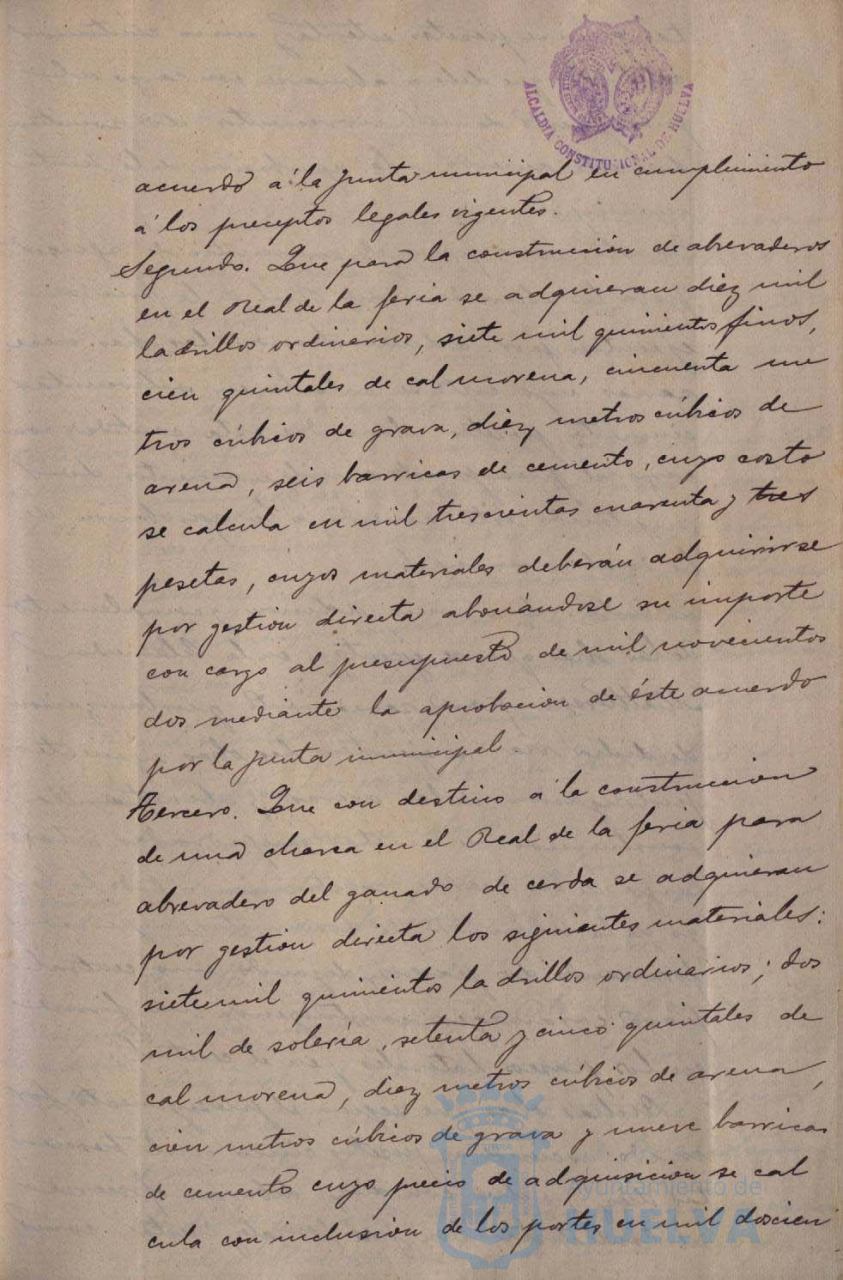 ALCALDIA CONSTITUCIONAL DE HUELVA
acuerdo á la Junta municipal en cumplimiento
á los preceptos legales vigentes.
Segundo. Que para la construcción de abrevaderos
en el Real de la feria se adquieran diez mil
ladrillos ordinarios, siete mil quinientos finos,
cien quintales de cal morena, cincuenta me
tros cúbicos de grava, diez metros cúbicos de
arena, seis barricas de cemento, cuyo costo
se calcula en mil trescientas cuarenta y tres
pesetas, cuyos materiales deberán adquirirse
por gestion directa abonándose su importe
con cargo al presupuesto de mil novecientos
dos mediante la aprobacion de éste acuerdo
por la Junta municipal.
Tercero. Que con destino á la construccion
de una charca en el Real de la feria para
abrevadero del ganado de cerda se adquieran
por gestion directa los siguientes materiales:
siete mil quinientos ladrillos ordinarios; dos
mil de solería, setenta y cinco quintales de
cal morena, diez metros cúbicos de arena,
cien metros cúbicos de grava y nueve barricas
de cemento cuyo precio de adquisicion se cal
cula con inclusion de los portes en mil doscien
Ayuntamiento de
HUELVA